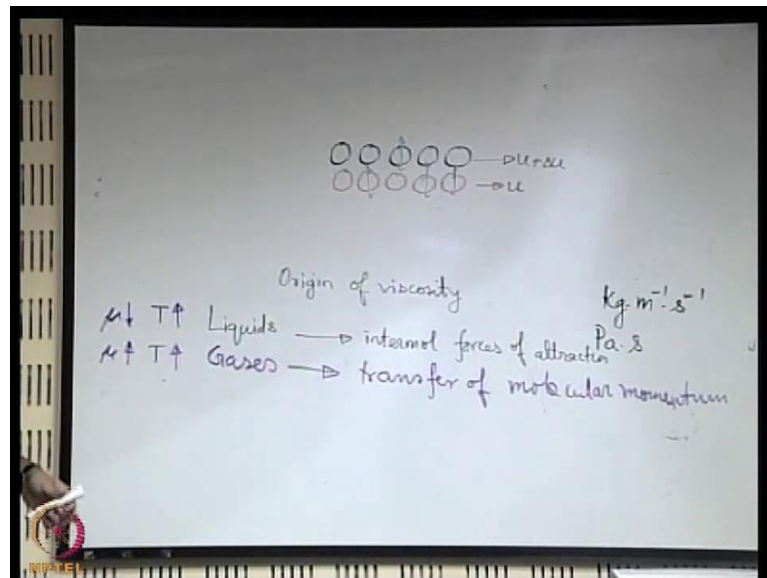 → u+Δu
→ u
Origin of viscosity
kg·m⁻¹·s⁻¹
Pa·s
μ↓ T↑ Liquids → intermol forces of attraction
μ↑ T↑ Gases → transfer of molecular momentum
NPTEL